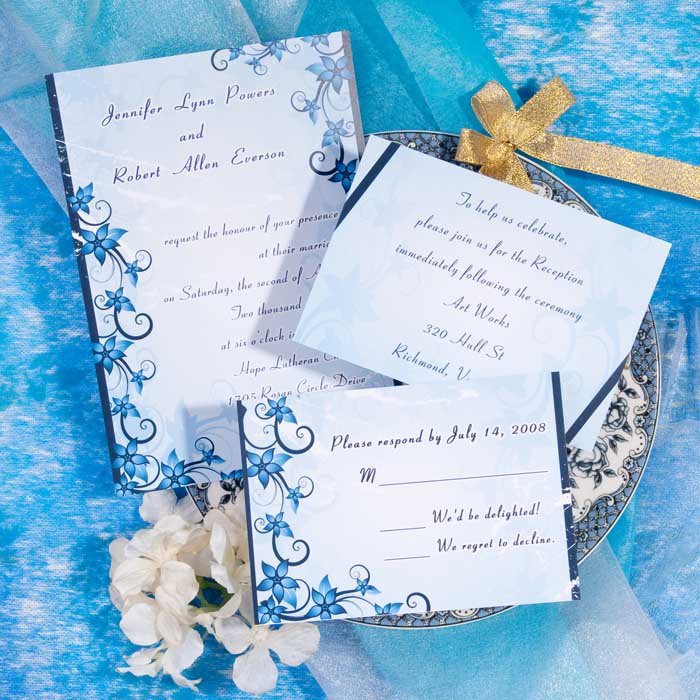 Jennifer Lynn Powers
and
Robert Allen Everson
request the honour of your presence
at their
on Saturday, the second of
Two thousand
at six o'clock
Hope Lutheran
1705 Rosan Circle Drive
To help us celebrate,
please join us for the Reception
immediately following the ceremony
Art Works
320 Hull St
Richmond,
Please respond by July 14, 2008
M
We'd be delighted!
We regret to decline.